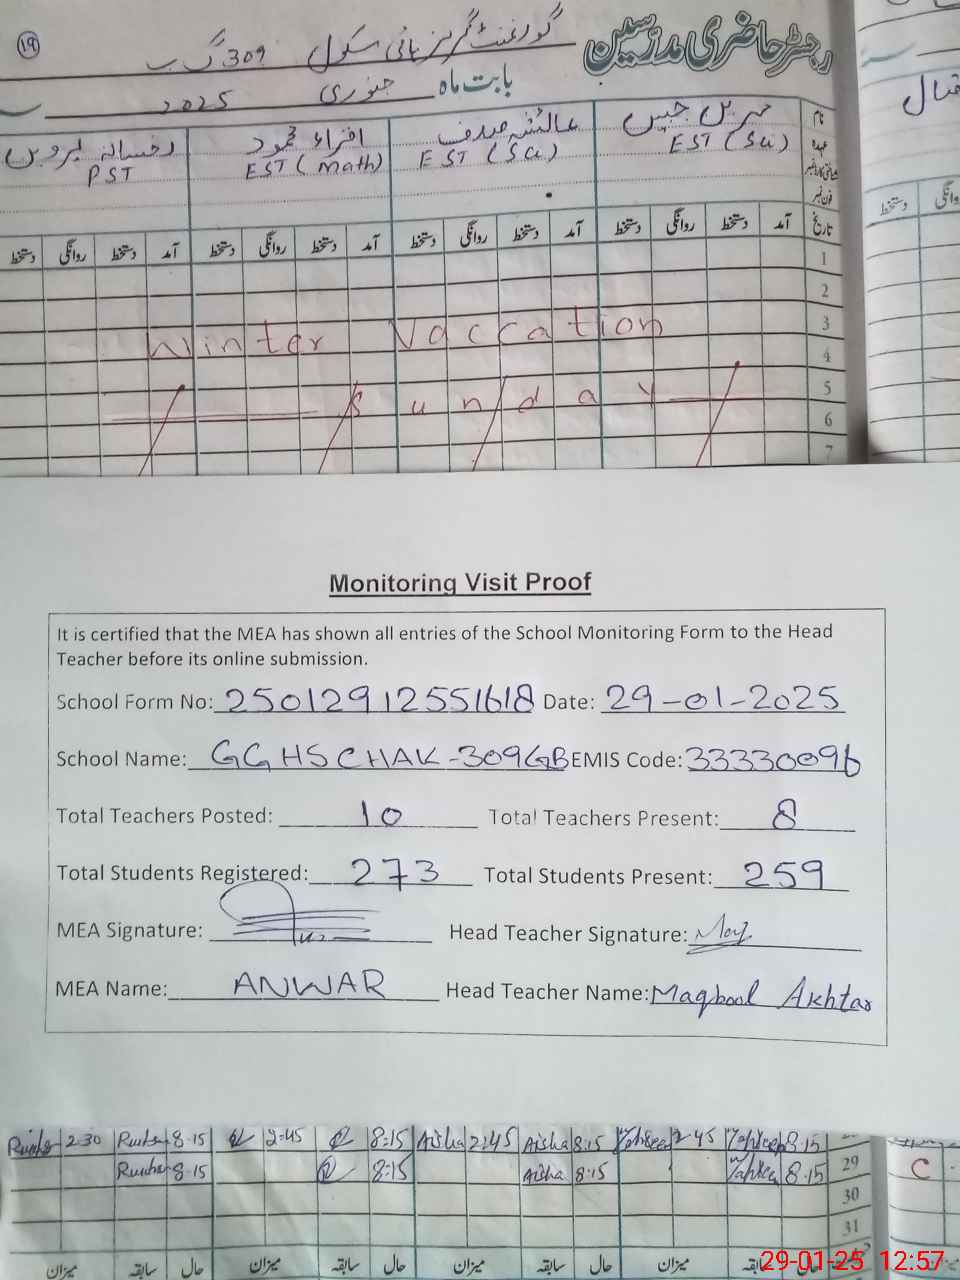 ۱۹
رجسٹر حاضری مدرسین گورنمنٹ گرلز ہائی سکول 309 گ ب
بابت ماہ جنوری 2025
نام مہرین عائشہ صدف اقراء محمود رخسانہ پروین
عہدہ EST (Sci) EST (Sci) EST (Math) PST
شناختی کارڈ نمبر
فون نمبر
تاریخ آمد دستخط روانگی دستخط آمد دستخط روانگی دستخط آمد دستخط روانگی دستخط آمد دستخط روانگی دستخط
دستخط
1
2
3
Winter Vaccation
4
5
Sunday
6
7
Monitoring Visit Proof
It is certified that the MEA has shown all entries of the School Monitoring Form to the Head
Teacher before its online submission.
School Form No: 25012912551618 Date: 29-01-2025
School Name: GGHS CHAK-309GB EMIS Code: 33330096
Total Teachers Posted: 10 Total Teachers Present: 8
Total Students Registered: 273 Total Students Present: 259
MEA Signature: Head Teacher Signature:
MEA Name: ANWAR Head Teacher Name: Maqbool Akhtar
2:30 8:15 2:45 8:15 Aisha 2:45 Aisha 8:15 2:45 8:15
8:15 8:15 Aisha 8:15 8:15 29 C
30
31
میزان سابقہ حال میزان سابقہ حال میزان سابقہ حال میزان
29-01-25 12:57